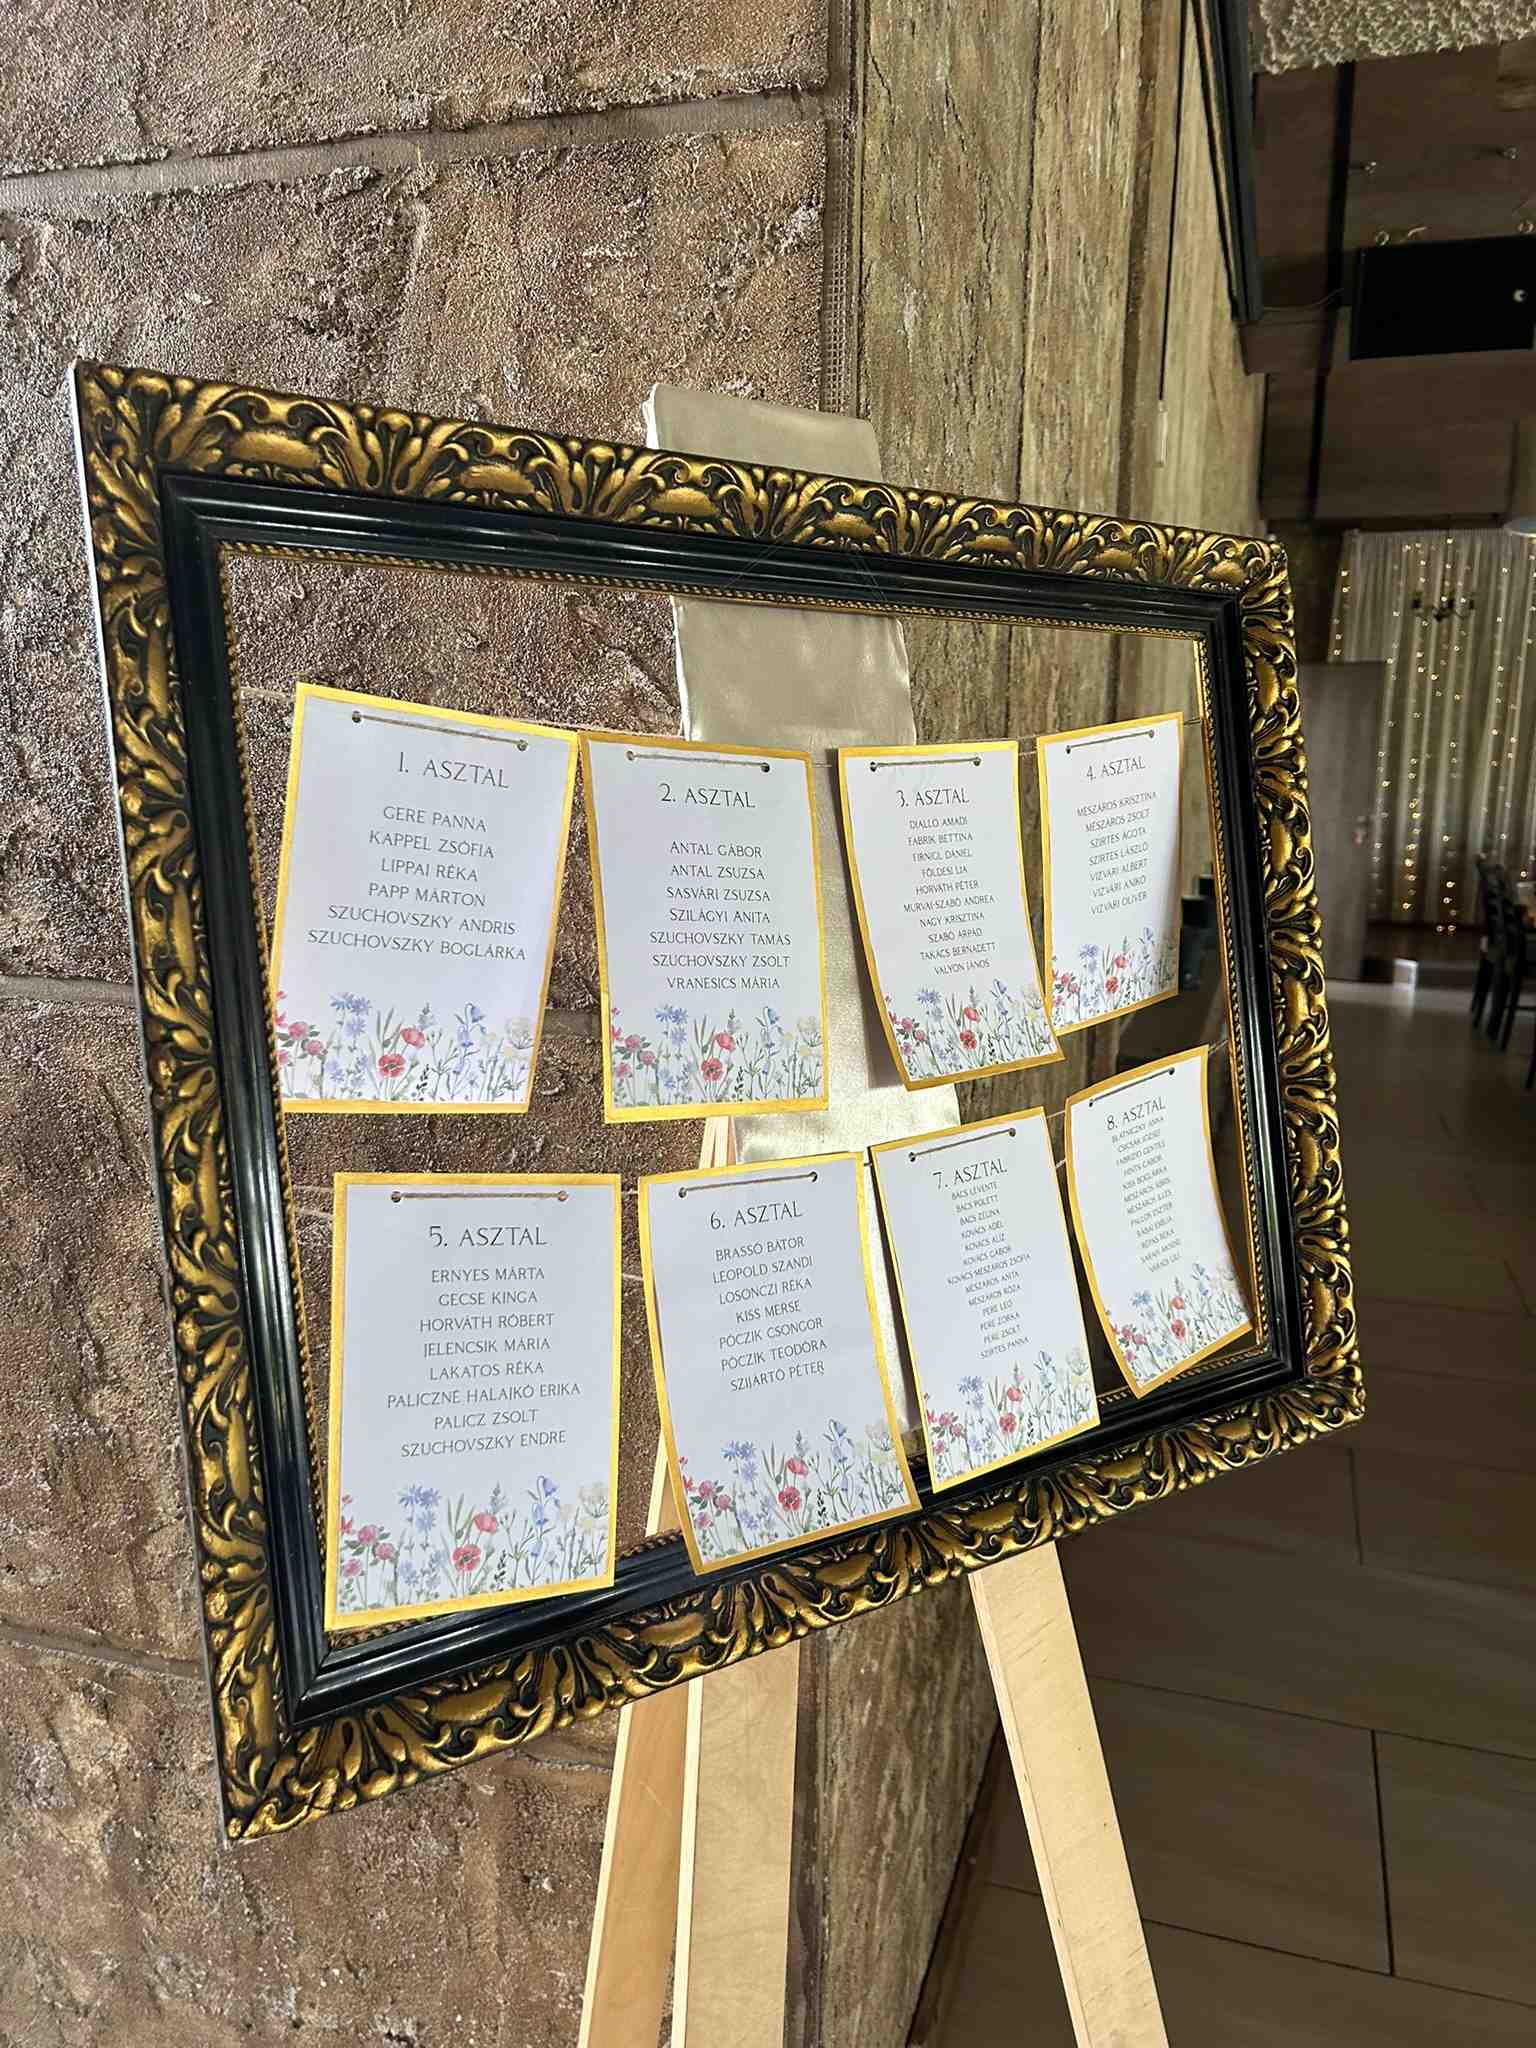 1. ASZTAL
GERE PANNA
KAPPEL ZSÓFIA
LIPPAI RÉKA
PAPP MÁRTON
SZUCHOVSZKY ANDRIS
SZUCHOVSZKY BOGLÁRKA
2. ASZTAL
ANTAL GÁBOR
ANTAL ZSUZSA
SASVÁRI ZSUZSA
SZILÁGYI ANITA
SZUCHOVSZKY TAMÁS
SZUCHOVSZKY ZSOLT
VRANESICS MÁRIA
3. ASZTAL
DIALLO AMADI
FABRIK BETTINA
FIRNIGL DÁNIEL
FÖLDESI LIA
HORVÁTH PÉTER
MURVAI-SZABÓ ANDREA
NAGY KRISZTINA
SZABÓ ÁRPÁD
TAKÁCS BERNADETT
VALYON JÁNOS
4. ASZTAL
MÉSZÁROS KRISZTINA
MÉSZÁROS ZSOLT
SZIRTES ÁGOTA
SZIRTES LÁSZLÓ
VIZVÁRI ALBERT
VIZVÁRI ANIKÓ
VIZVÁRI OLIVÉR
5. ASZTAL
ERNYES MÁRTA
GECSE KINGA
HORVÁTH RÓBERT
JELENCSIK MÁRIA
LAKATOS RÉKA
PALICZNÉ HALAJKÓ ERIKA
PALICZ ZSOLT
SZUCHOVSZKY ENDRE
6. ASZTAL
BRASSÓ BÁTOR
LEOPOLD SZANDI
LOSONCZI RÉKA
KISS MERSE
PÓCZIK CSONGOR
PÓCZIK TEODÓRA
SZIJÁRTÓ PÉTER
7. ASZTAL
BÁCS LEVENTE
BÁCS POLETT
BÁCS ZELINA
KOVÁCS ADÉL
KOVÁCS ALÍZ
KOVÁCS GÁBOR
KOVÁCS MÉSZÁROS ZSÓFIA
MÉSZÁROS ANITA
MÉSZÁROS RÓZA
PERE LEÓ
PERE ZORKA
PERE ZSOLT
SZIRTES PANNA
8. ASZTAL
BLATNICZKY ANNA
CSICSÁK JÓZSEF
FABRIZIO GENTILE
HINTS GÁBOR
KISS BOGLÁRKA
MÉSZÁROS ÍBRIS
MÉSZÁROS ILLÉS
PALLÓS ESZTER
RABAI EMÍLIA
RÉPÁS RÉKA